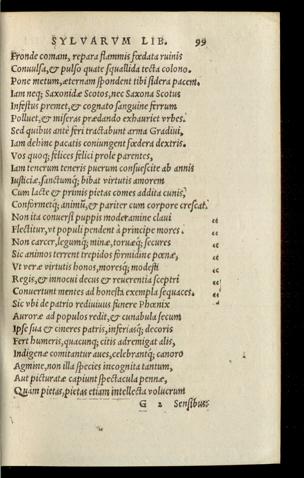 SYLVARVM LIB. 99
Fronde comam, repara flammis fœdata ruinis
Conuulsa, & pulso quate squallida tecta colono.
Pone metum, æternam spondent tibi sidera pacem.
Iam neq; Saxonidæ Scotos, nec Saxona Scotus
Infestus premet, & cognato sanguine ferrum
Polluet, & miseras prædando exhauriet vrbes.
Sed quibus antè feri tractabunt arma Gradiui,
Iam dehinc pacatis coniungent fœdera dextris.
Vos quoq; felices felici prole parentes,
Iam tenerum teneris puerum consuescite ab annis
Iusticiæ, sanctumq́; bibat virtutis amorem
Cum lacte & primis pietas comes addita cunis,
Conformetq́; animũ, & pariter cum corpore crescat.
Non ita conuersi puppis moderamine claui “
Flectitur, vt populi pendent à principe mores. “
Non carcer, legumq́; minæ, toruæq́; secures “
Sic animos terrent trepidos formidine pœnæ, “
Vt veræ virtutis honos, moresq́; modesti “
Regis, & innocui decus & reuerentia sceptri “
Conuertunt mentes ad honesta exempla sequaces. “
Sic vbi de patrio rediuiuus funere Phœnix
Auroræ ad populos redit, & cunabula secum
Ipse sua & cineres patris, inferiasq́; decoris
Fert humeris, quacunq; citis adremigat alis,
Indigenæ comitantur aues, celebrantq́; canoro
Agmine, non illa species incognita tantum,
Aut picturatæ capiunt spectacula pennæ,
Quàm pietas, pietas etiam intellecta volucrum
G 2 Sensibus: